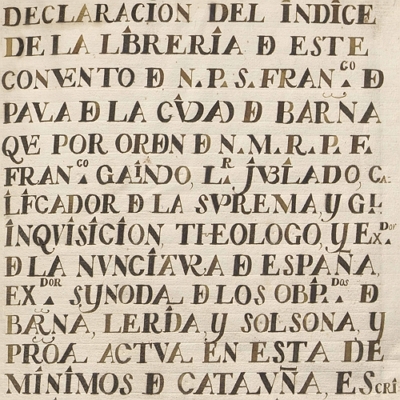 DECLARACION DEL INDICE
DE LA LIBRERIA D ESTE
CONVENTO D N.P.S. FRAN.CO D
PAVLA D LA CIVDAD D BARÑA
QVE POR ORDEN D N.M.R.P.F.
FRAN.CO GALINDO, L.R JVBILADO, CA-
LIFICADOR D LA SVPREMA, Y GL
INQVISICION, THEOLOGO, Y EX.DOR
D LA NVNCIATVRA D ESPAÑA,
EX.DOR SYNODAL D LOS OBP.DOS D
BARÑA, LERIDA, Y SOLSONA, Y
PRÕAL ACTVAL EN ESTA DE
MINIMOS D CATALVÑA, ESCRI